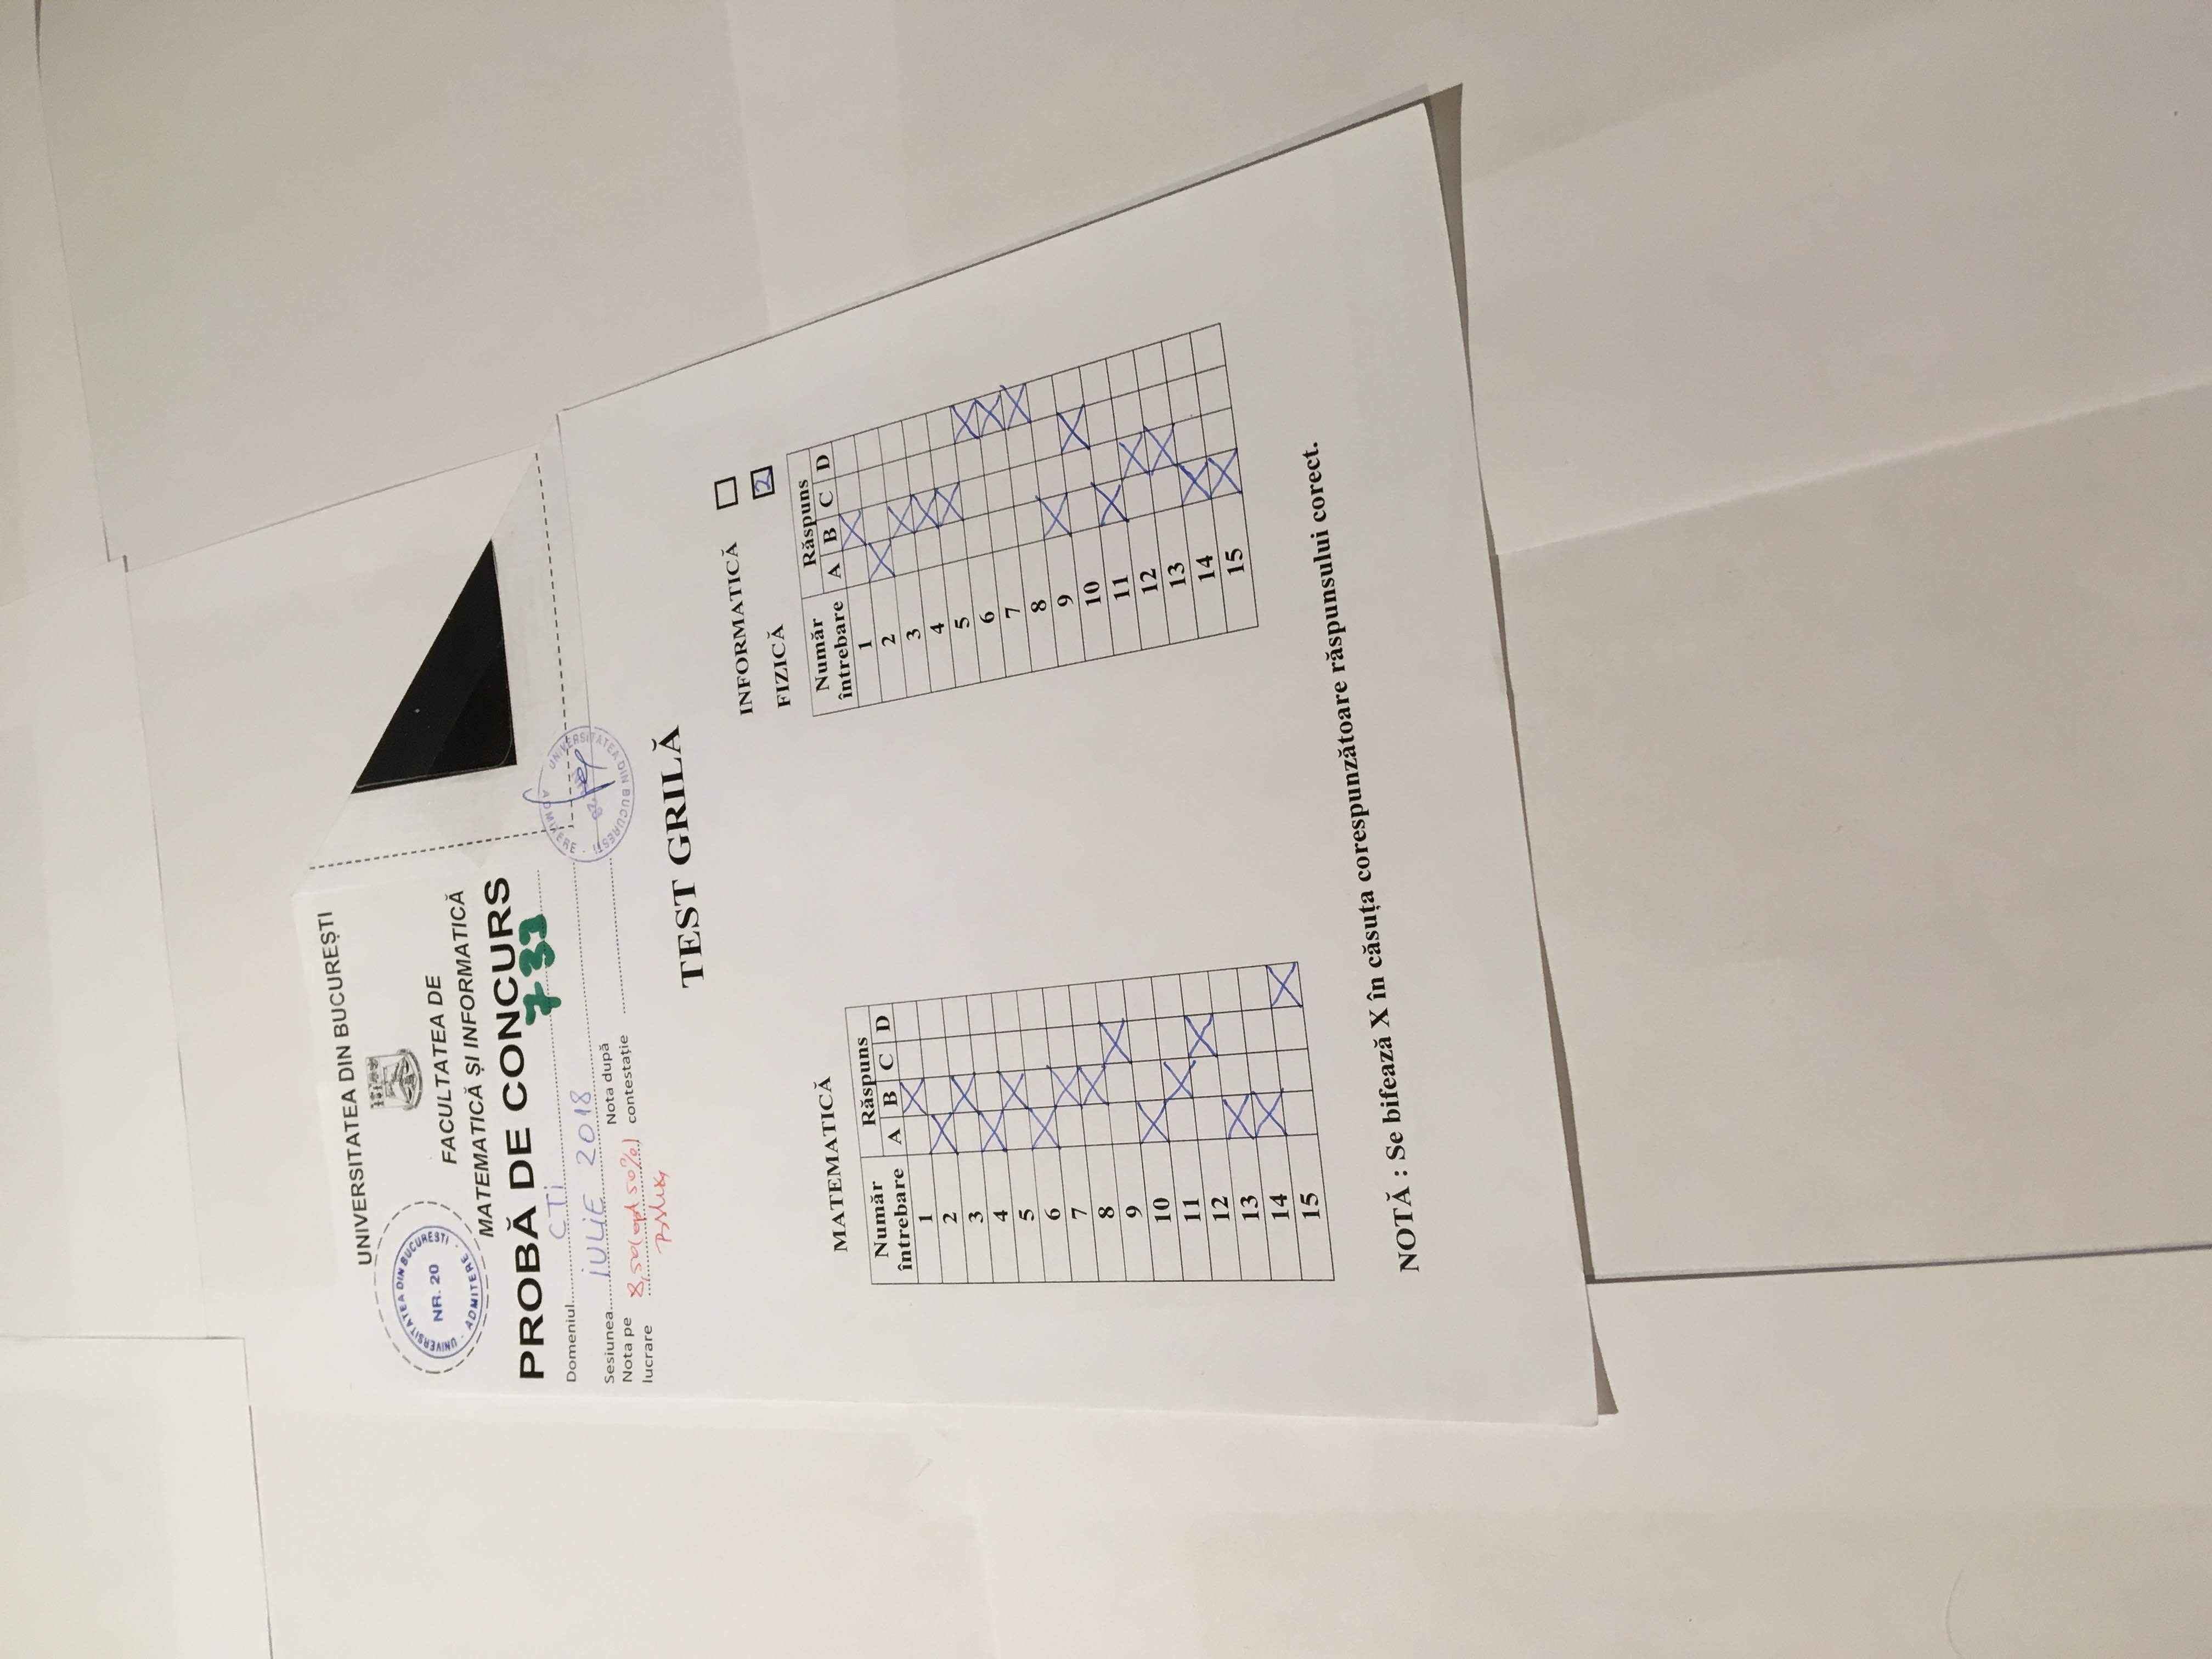 UNIVERSITATEA DIN BUCUREȘTI
UNIVERSITATEA DIN BUCUREȘTI
NR. 20
ADMITERE
FACULTATEA DE
MATEMATICĂ ȘI INFORMATICĂ
PROBĂ DE CONCURS
Domeniul CTi
Sesiunea iULiE 2018
Nota pe lucrare 8,50 (opt 50%)
Nota după contestație
UNIVERSITATEA DIN BUCUREȘTI
ADMITERE
TEST GRILĂ
INFORMATICĂ
FIZICĂ 2
MATEMATICĂ
Număr întrebare Răspuns
A B C D
1 X
2 X
3 X
4 X
5 X
6 X
7 X
8 X
9 X
10 X
11 X
12 X
13 X
14 X
15 X
Număr întrebare Răspuns
A B C D
1 X
2 X
3 X
4 X
5 X
6 X
7 X
8 X
9 X
10 X
11 X
12 X
13 X
14 X
15 X
NOTĂ : Se bifează X în căsuța corespunzătoare răspunsului corect.